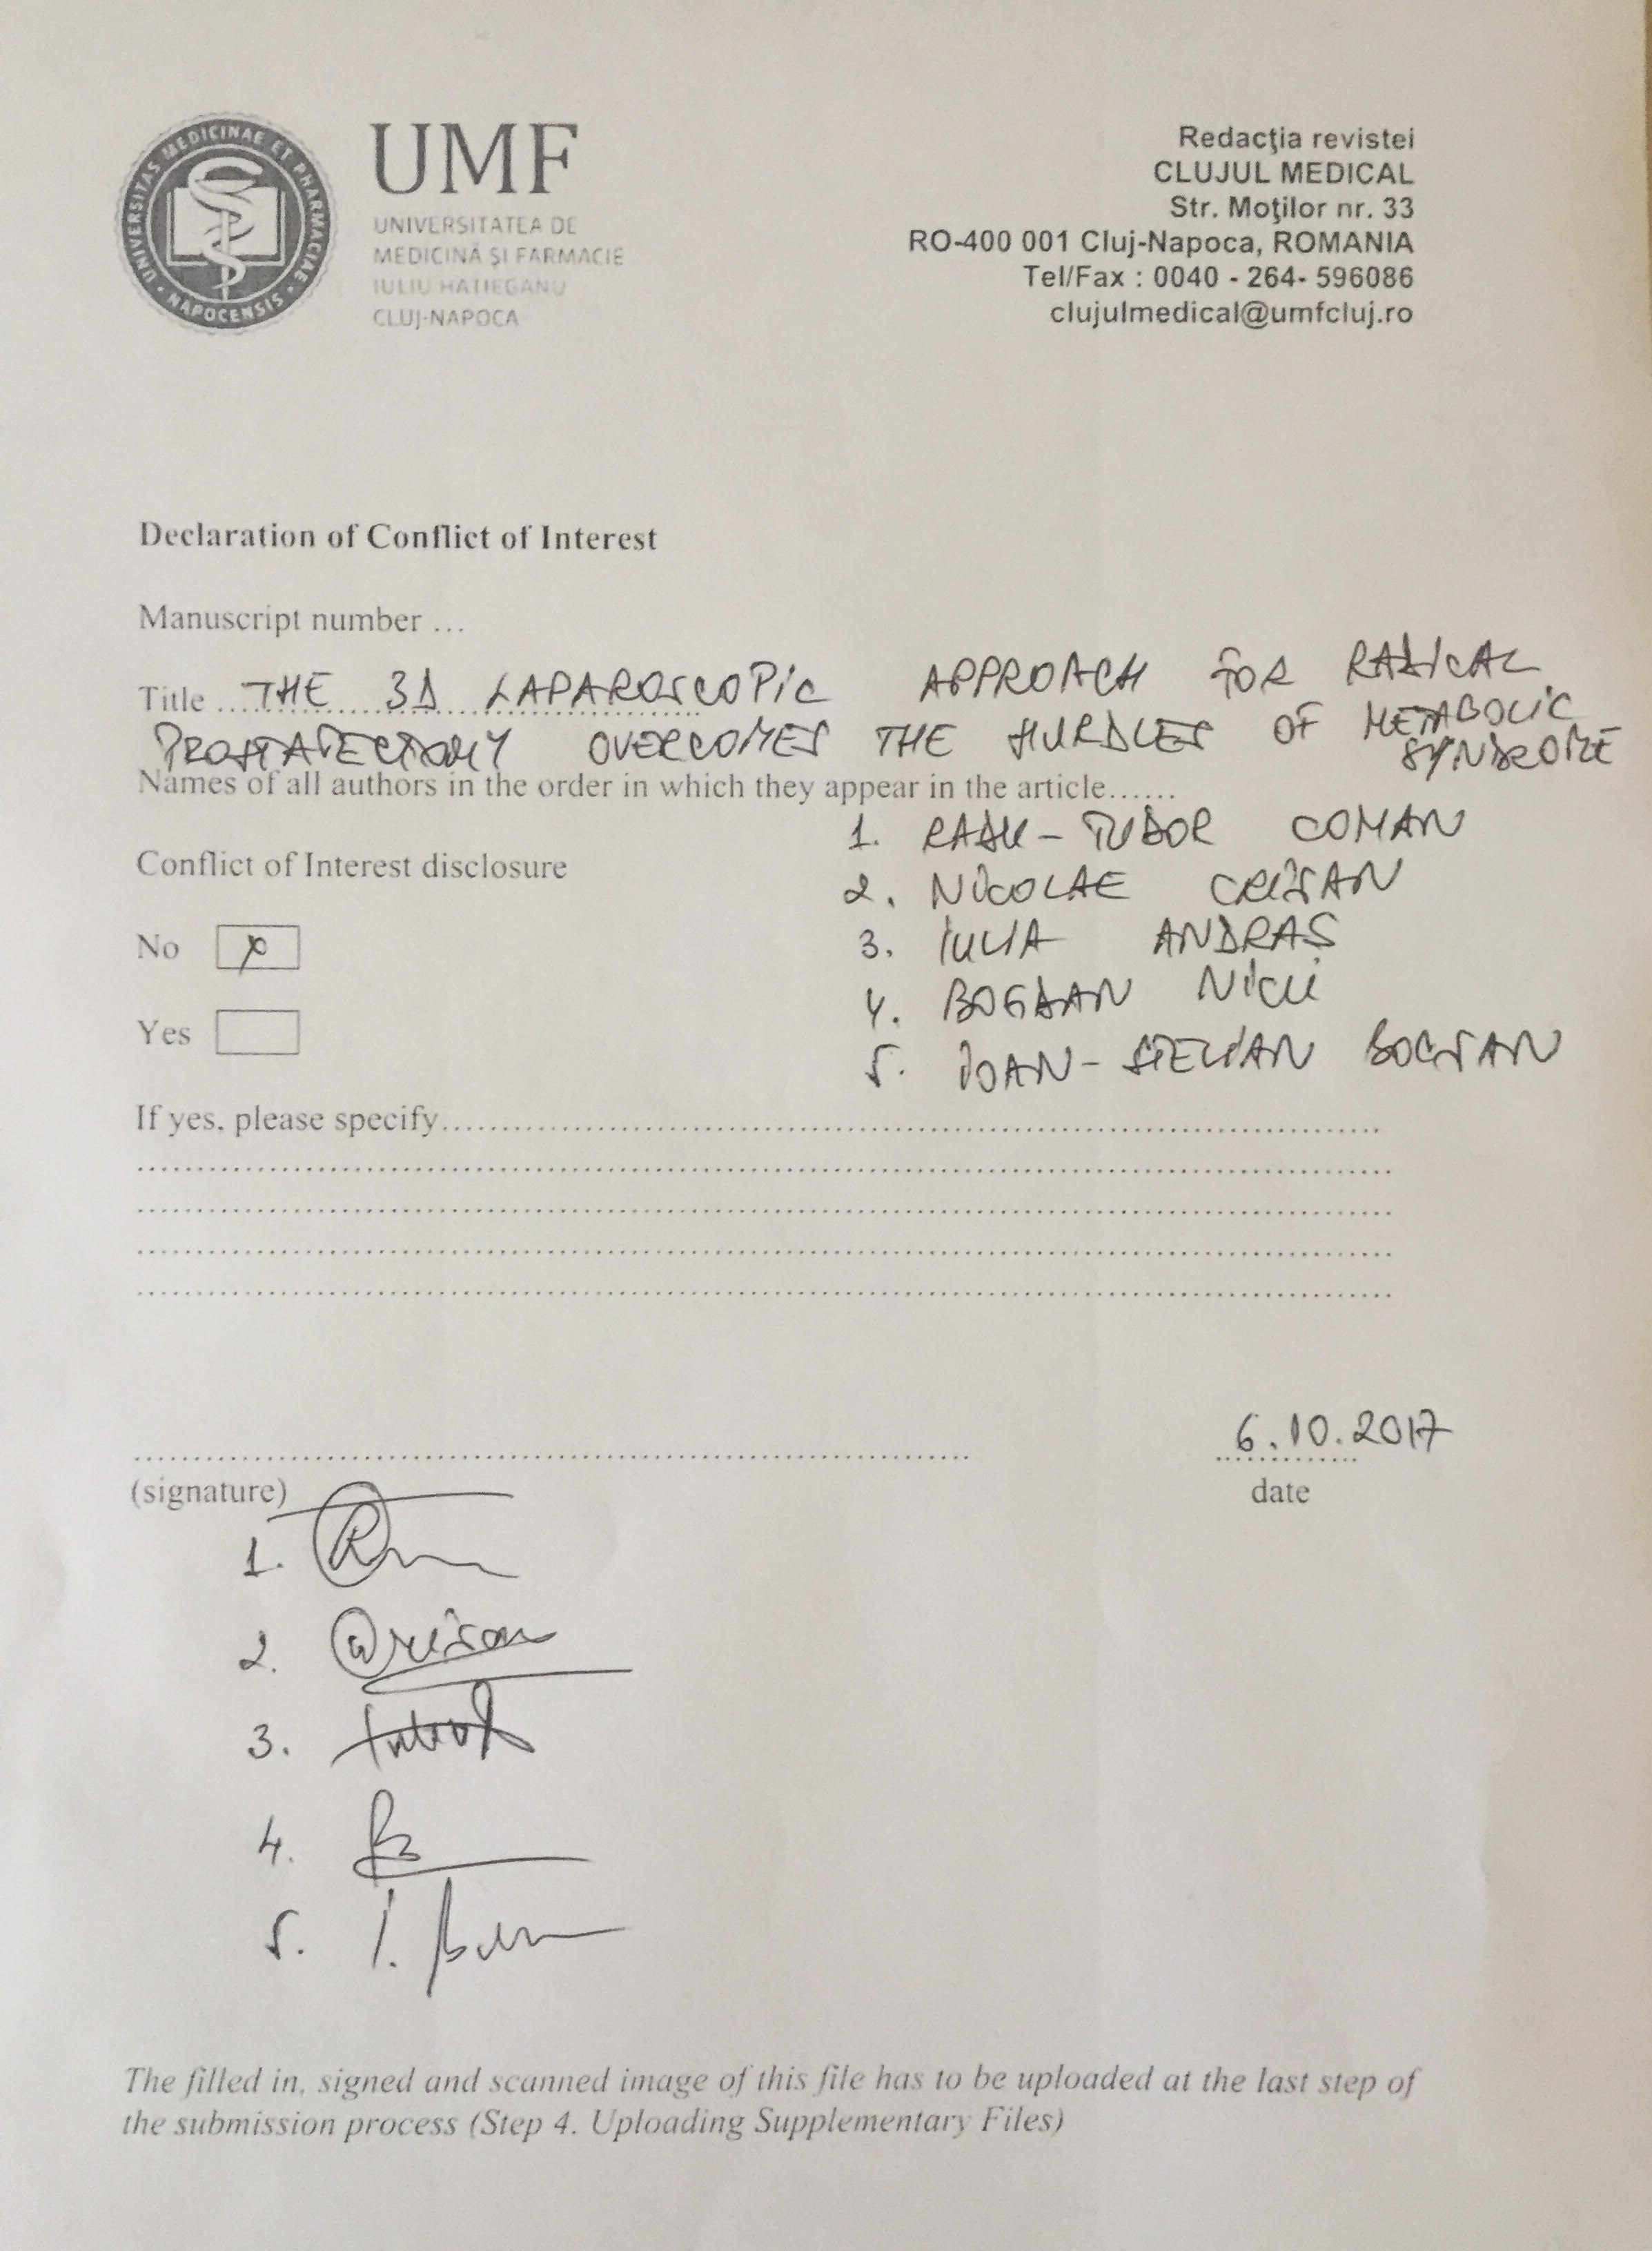 UNIVERSITAS MEDICINAE ET PHARMACIAE
NAPOCENSIS
UMF
UNIVERSITATEA DE
MEDICINĂ ŞI FARMACIE
IULIU HAŢIEGANU
CLUJ-NAPOCA
Redacţia revistei
CLUJUL MEDICAL
Str. Moţilor nr. 33
RO-400 001 Cluj-Napoca, ROMANIA
Tel/Fax : 0040 - 264- 596086
clujulmedical@umfcluj.ro
Declaration of Conflict of Interest
Manuscript number ...
Title ... THE 3D LAPAROSCOPIC APPROACH FOR RADICAL
PROSTATECTOMY OVERCOMES THE HURDLES OF METABOLIC
SYNDROME
Names of all authors in the order in which they appear in the article......
1. RADU-TUDOR COMAN
2. NICOLAE CRIȘAN
3. IULIA ANDRAȘ
4. BOGDAN NICU
5. IOAN-STELIAN BOCȘAN
Conflict of Interest disclosure
No x
Yes
If yes, please specify....................
6.10.2017
(signature)
date
1.
2. Crisan
3.
4.
5. I.
The filled in, signed and scanned image of this file has to be uploaded at the last step of
the submission process (Step 4. Uploading Supplementary Files)